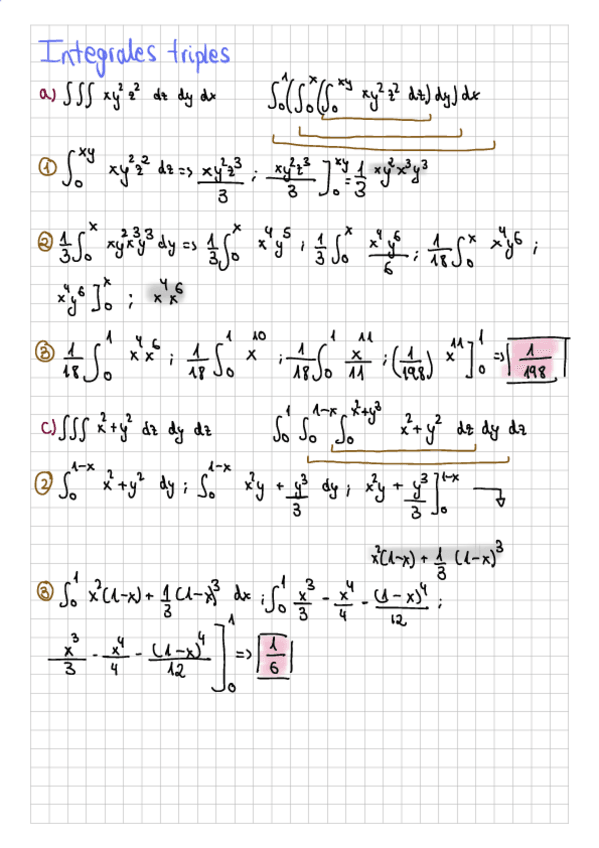 Integrales triples
a) ∫∫∫ xy²z² dz dy dx ∫₀¹(∫₀ˣ(∫₀ˣʸ xy²z² dz) dy) dx
① ∫₀ˣʸ xy²z² dz => xy²z³/3 ; xy²z³/3 ]₀ˣʸ = 1/3 xy²x³y³
② 1/3 ∫₀ˣ xy²x³y³ dy => 1/3 ∫₀ˣ x⁴y⁵ ; 1/3 ∫₀ˣ x⁴y⁶/6 ; 1/18 ∫₀ˣ x⁴y⁶ ;
x⁴y⁶ ]₀ˣ ; x⁴x⁶
③ 1/18 ∫₀¹ x⁴x⁶ ; 1/18 ∫₀¹ x¹⁰ ; 1/18 ∫₀¹ x¹¹/11 ; (1/198) x¹¹ ]₀¹ => 1/198
c) ∫∫∫ x²+y² dz dy dz ∫₀¹ ∫₀¹⁻ˣ ∫₀^(x²+y³) x²+y² dz dy dz
② ∫₀¹⁻ˣ x²+y² dy ; ∫₀¹⁻ˣ x²y + y³/3 dy ; x²y + y³/3 ]₀¹⁻ˣ
x²(1-x) + 1/3 (1-x)³
③ ∫₀¹ x²(1-x) + 1/3 (1-x)³ dx ; ∫₀¹ x³/3 - x⁴/4 - (1-x)⁴/12 ;
x³/3 - x⁴/4 - (1-x)⁴/12 ]₀¹ => 1/6